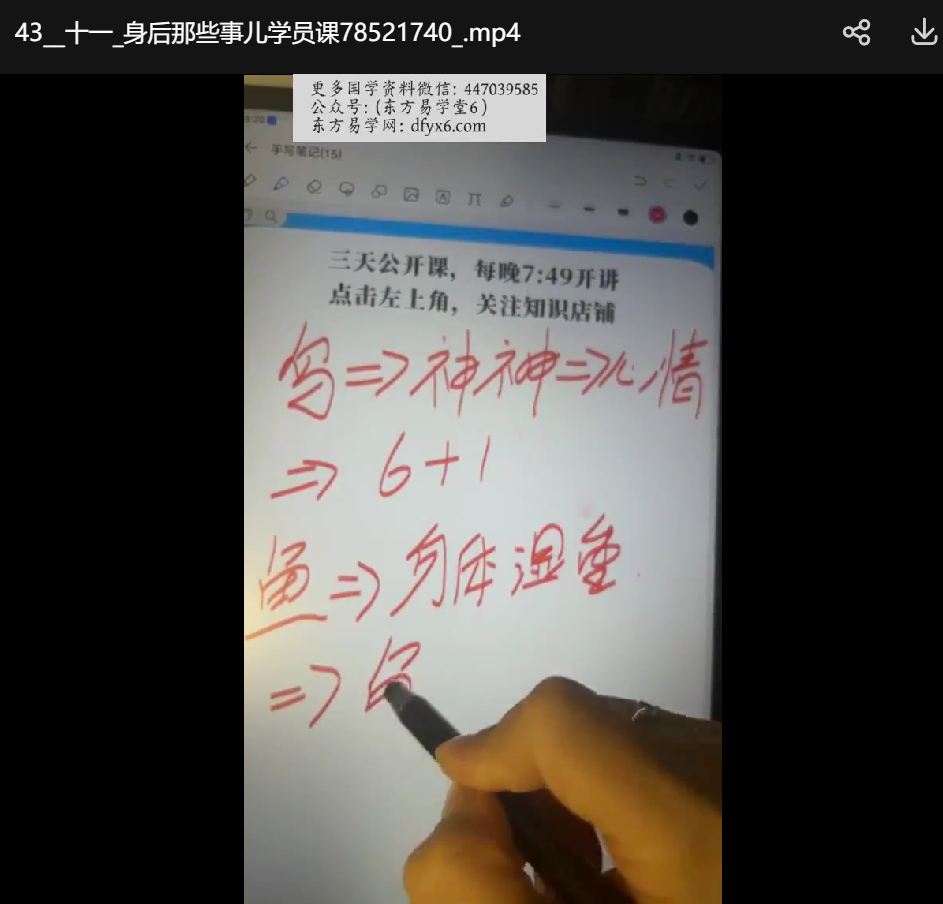 43__十一_身后那些事儿学员课78521740_.mp4
更多国学资料微信: 447039585
公众号: (东方易学堂6)
东方易学网: dfyx6.com
8:20
手写笔记(15)
三天公开课，每晚7:49开讲
点击左上角，关注知识店铺
鸟=>神神=>心情
=> 6+1
鱼=>身体湿重
=>